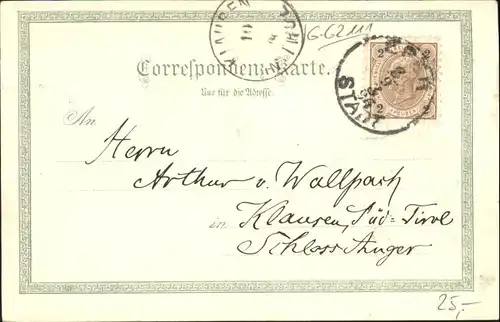 KLAUSEN
G-G2111
Correspondenz-Karte.
Nur für die Adresse.
STADT
An
Herrn
Arthur v. Wallpach
in Klausen, Süd-Tirol
Schloss Anger
25,-